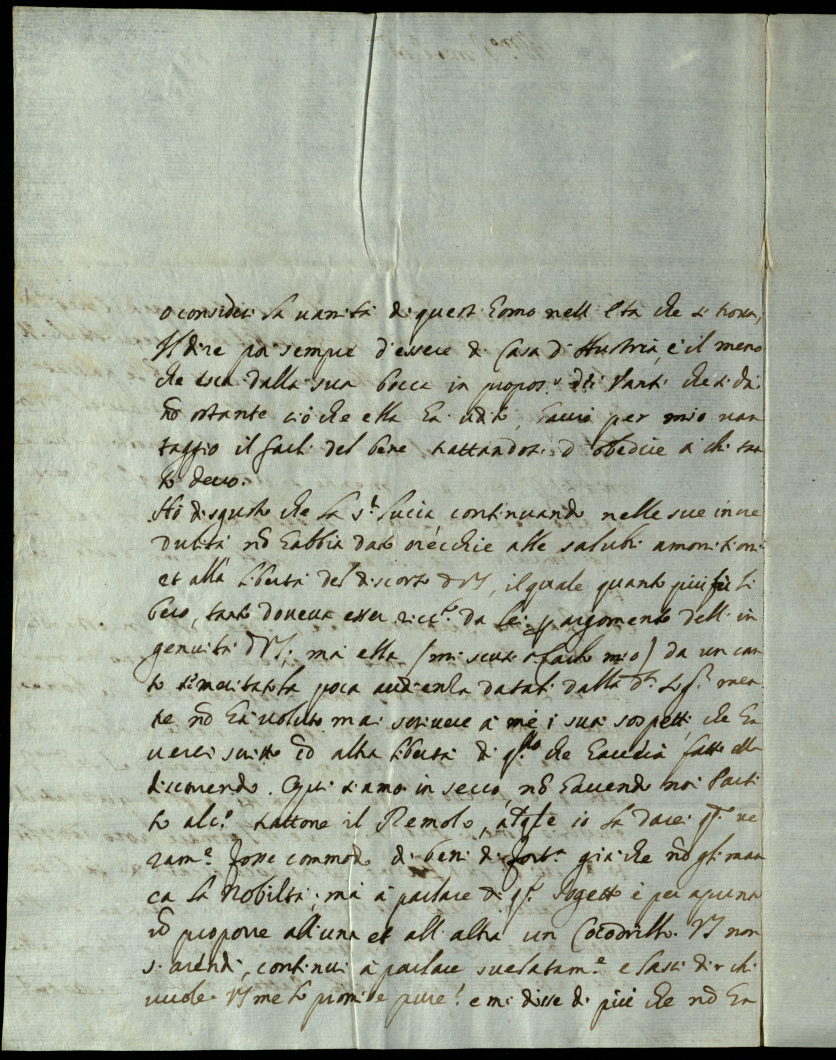 o consideri la vanità di quest'homo nell'età che si trova,
Il dire poi sempre d'essere di Casa d'Austria, è il meno
che esca dalla sua bocca in propos.º delli Vanti che si dà
nõ ostante ciò che ella ha udito, havrò per mio van
taggio il farli del bene trattandosi d'obedire a chi tan
to devo.
Hò disgusto che la S.ª Lucia continuando nelle sue incre
dulità nõ habbia dato orecchie alle salubri amonitioni
et alla libertà del discorso di VS, il quale quanto più fù li
bero, tanto doveva esser da lei argomento dell'in
genuità di VS; ma ella (mi scusi) da un can
to meritata la poca audienza datali dalla
te nõ hà voluto mai scrivere à me i suoi sospetti che ha
verei scritto cõ altra libertà di q.llo che haverà fatto ella
discorrendo. Qui siamo in secco, nõ havendo noi Parti
to alc.º trattone il Remolo, io la darei se ve
ram.e fosse commodo di beni di fort.ª già che nõ gli man
ca la Nobiltà; mà à parlare di q.º sogetto è per apunto
cõ proporre all'una et all'altra un Cocodrillo. VS non
s'arendi, continui à parlare svelatam.e e lasci dir chi
vuole. VS me lo promise pure! e mi disse di più che nõ ha